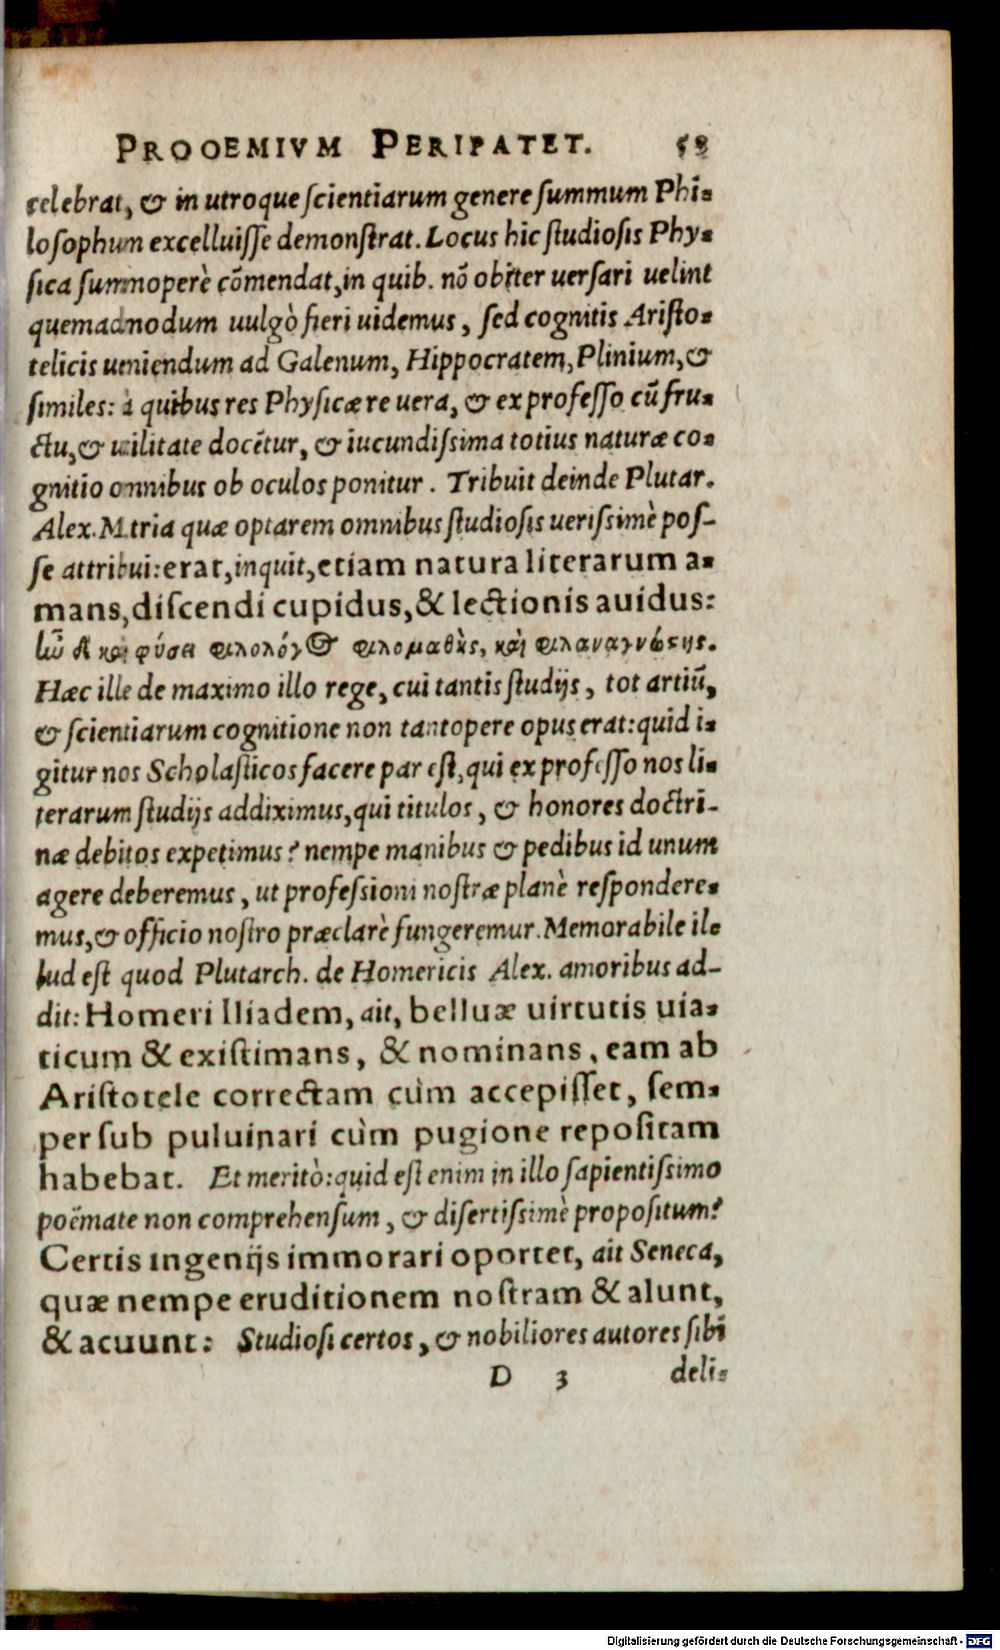 PROOEMIVM PERIPATET. 53
celebrat, & in utroque ſcientiarum genere ſummum Phi-
loſophum excelluiſſe demonſtrat. Locus hic ſtudioſis Phy-
ſica ſummoperè cõmendat, in quib. nõ obiter uerſari uelint
quemadmodum uulgò fieri uidemus, ſed cognitis Ariſto-
telicis ueniendum ad Galenum, Hippocratem, Plinium, &
ſimiles: à quibus res Phyſicæ re uera, & ex profeſſo cũ fru-
ctu, & utilitate docẽtur, & iucundiſsima totius naturæ co-
gnitio omnibus ob oculos ponitur. Tribuit deinde Plutar.
Alex. M. tria quæ optarem omnibus ſtudioſis ueriſsimè poſ-
ſe attribui: erat, inquit, etiam natura literarum a-
mans, diſcendi cupidus, & lectionis auidus:
ἰῶ δὲ καὶ φύσει φιλολόγος φιλομαθὴς, καὶ φιλαναγνώστης.
Hæc ille de maximo illo rege, cui tantis ſtudijs, tot artiũ,
& ſcientiarum cognitione non tantopere opus erat: quid i-
gitur nos Scholaſticos facere par eſt, qui ex profeſſo nos li-
terarum ſtudijs addiximus, qui titulos, & honores doctri-
næ debitos expetimus? nempe manibus & pedibus id unum
agere deberemus, ut profeſsioni noſtræ planè reſpondere-
mus, & officio noſtro præclarè fungeremur. Memorabile il-
lud eſt quod Plutarch. de Homericis Alex. amoribus ad-
dit: Homeri Iliadem, ait, belluæ uirtutis uia-
ticum & exiſtimans, & nominans, eam ab
Ariſtotele correctam cùm accepiſſet, ſem-
per ſub puluinari cùm pugione repoſitam
habebat. Et meritò: quid eſt enim in illo ſapientiſsimo
poëmate non comprehenſum, & diſertiſsimè propoſitum?
Certis ingenijs immorari oportet, ait Seneca,
quæ nempe eruditionem noſtram & alunt,
& acuunt: Studioſi certos, & nobiliores autores ſibi
D 3 deli-
Digitalisierung gefördert durch die Deutsche Forschungsgemeinschaft - DFG